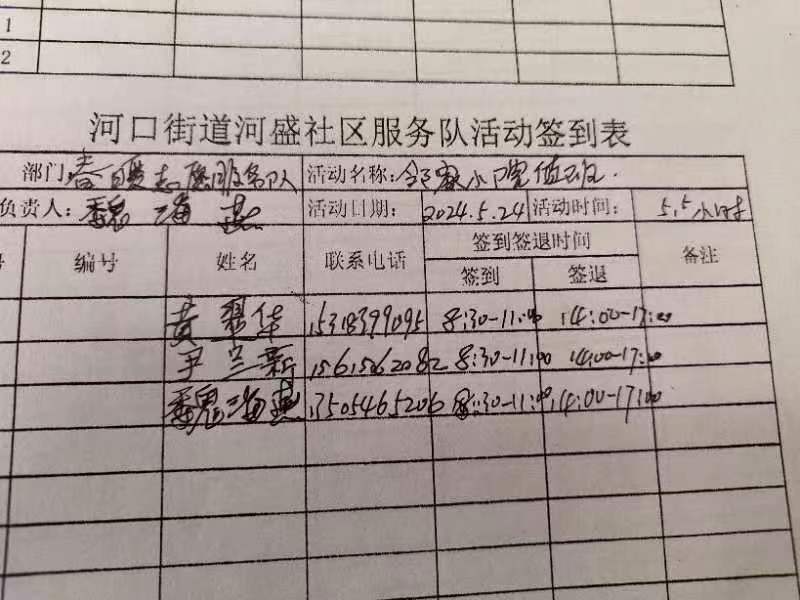 1
2
河口街道河盛社区服务队活动签到表
部门:春暖志愿服务队 活动名称:邻家小院值班.
负责人:魏海燕 活动日期: 2024.5.24 活动时间: 5.5小时
编号 姓名 联系电话 签到签退时间 备注
签到 签退
黄翠华 15318399095 8:30-11:00 14:00-17:00
尹兰新 15615262082 8:30-11:00 14:00-17:00
魏海燕 13505465206 8:30-11:00 14:00-17:00